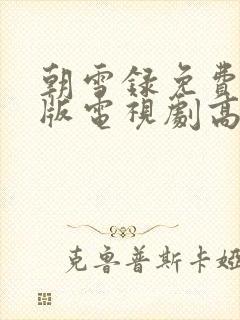 朝雪録免費
版電視劇高
克魯普斯卡婭